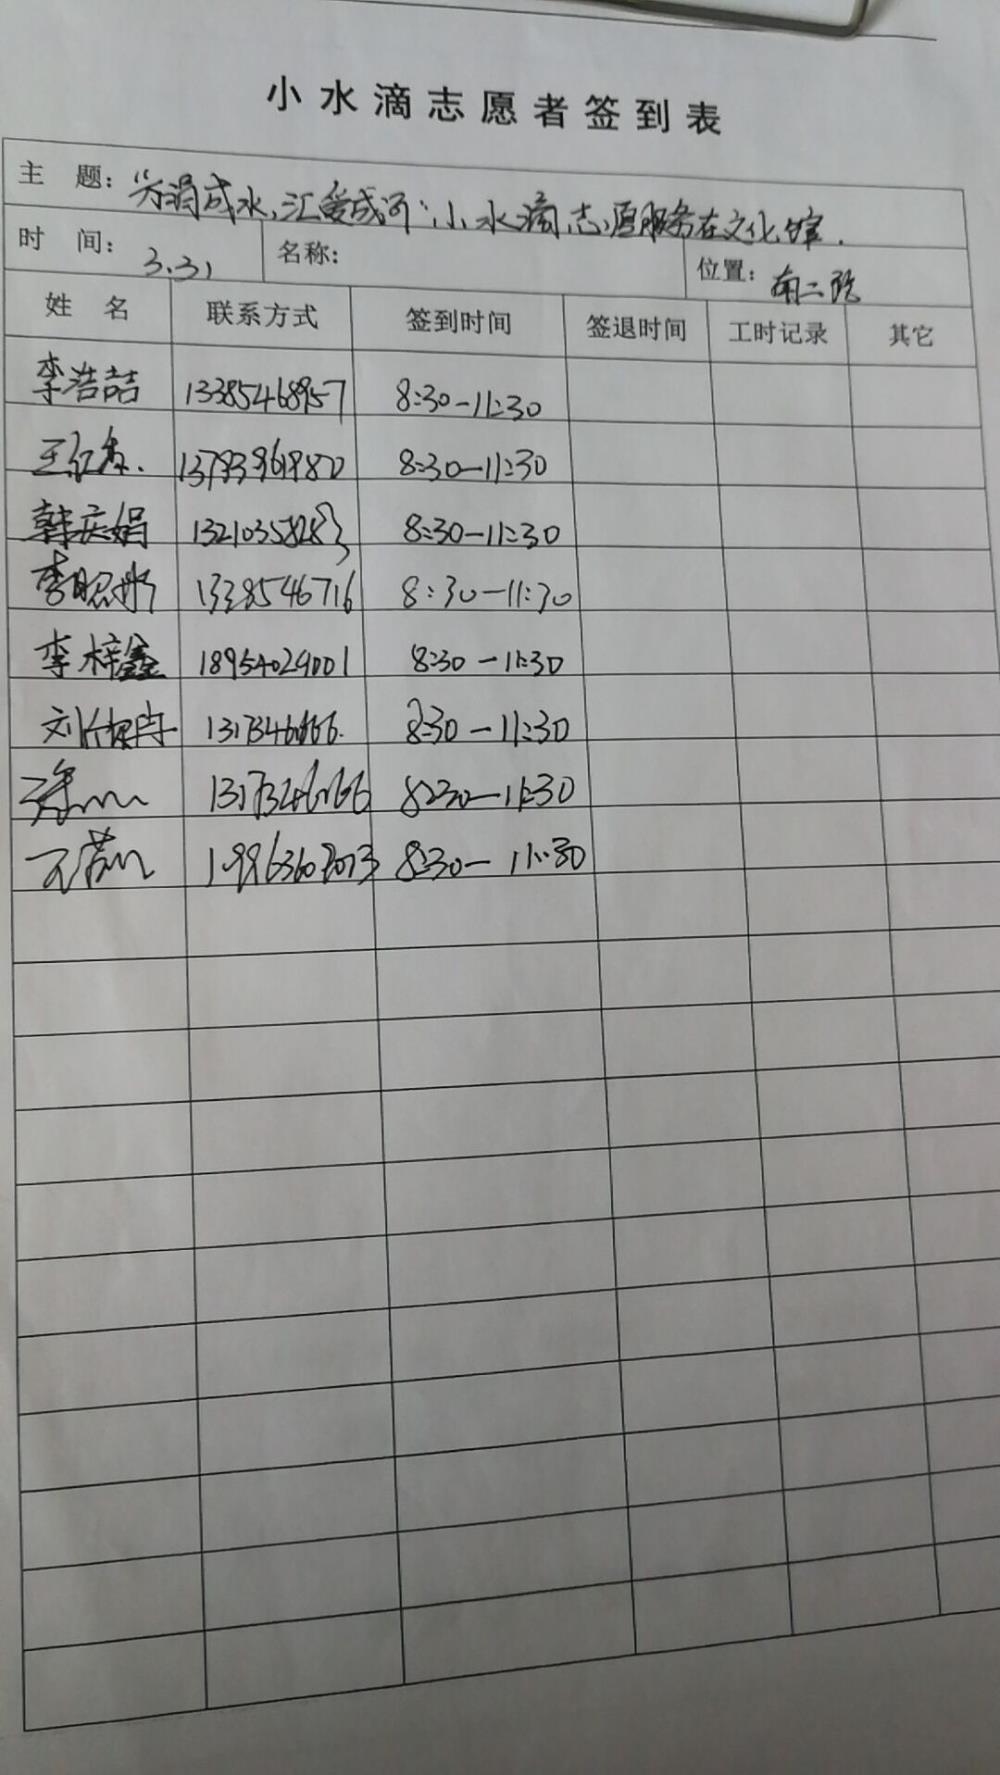 小水滴志愿者签到表
主 题：涓成水，汇爱成河”小水滴志愿服务在文化馆.
时 间： 3.31 名称： 位置： 南二院
姓 名 联系方式 签到时间 签退时间 工时记录 其它
李浩喆 13385468957 8:30-11:30
王红 13793961980 8:30-11:30
韩庆娟 8:30-11:30
李昭 1338546716 8:30-11:30
李梓鑫 18954029001 8:30-11:30
刘 8:30-11:30
8:30-11:30
8:30-11:30